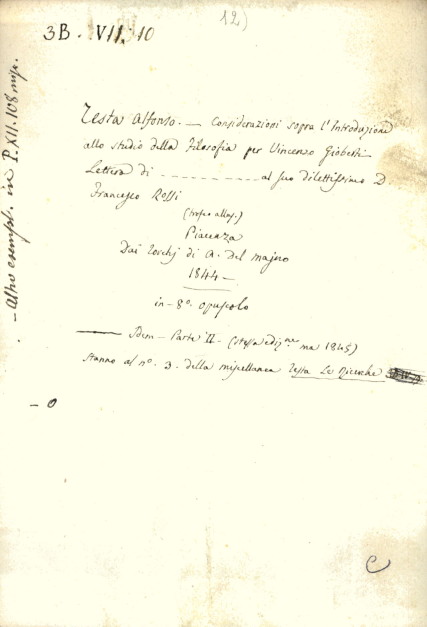 12)
3B. VII. 10
Testa Alfonso. — Considerazioni sopra l'Introduzione
allo studio della Filosofia per Vincenzo Gioberti
Lettera di - - - - - - - - - - al suo dilettissimo D.
Francesco Rossi
Piacenza
Dai torchj di A. Del majno
1844 —
in-8º. opuscolo
——— Idem — Parte II — (stessa edizne ma 1845)
stanno al nº. 3. della miscellanea Testa Le Ricerche
— 0
C
— Altro esempl. in P.XII.108 misc.